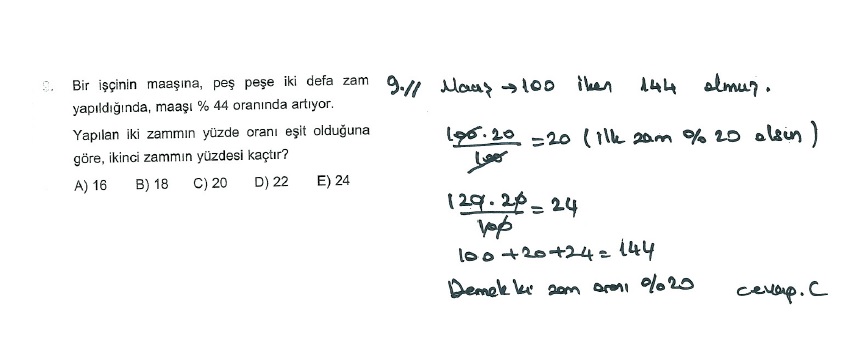 9. Bir işçinin maaşına, peş peşe iki defa zam
yapıldığında, maaşı % 44 oranında artıyor.
Yapılan iki zammın yüzde oranı eşit olduğuna
göre, ikinci zammın yüzdesi kaçtır?
A) 16 B) 18 C) 20 D) 22 E) 24
9.// Maaş → 100 iken 144 olmuş.
100.20/100 = 20 (ilk zam % 20 olsun)
120.20/100 = 24
100 + 20 + 24 = 144
Demek ki zam oranı %20 cevap. C